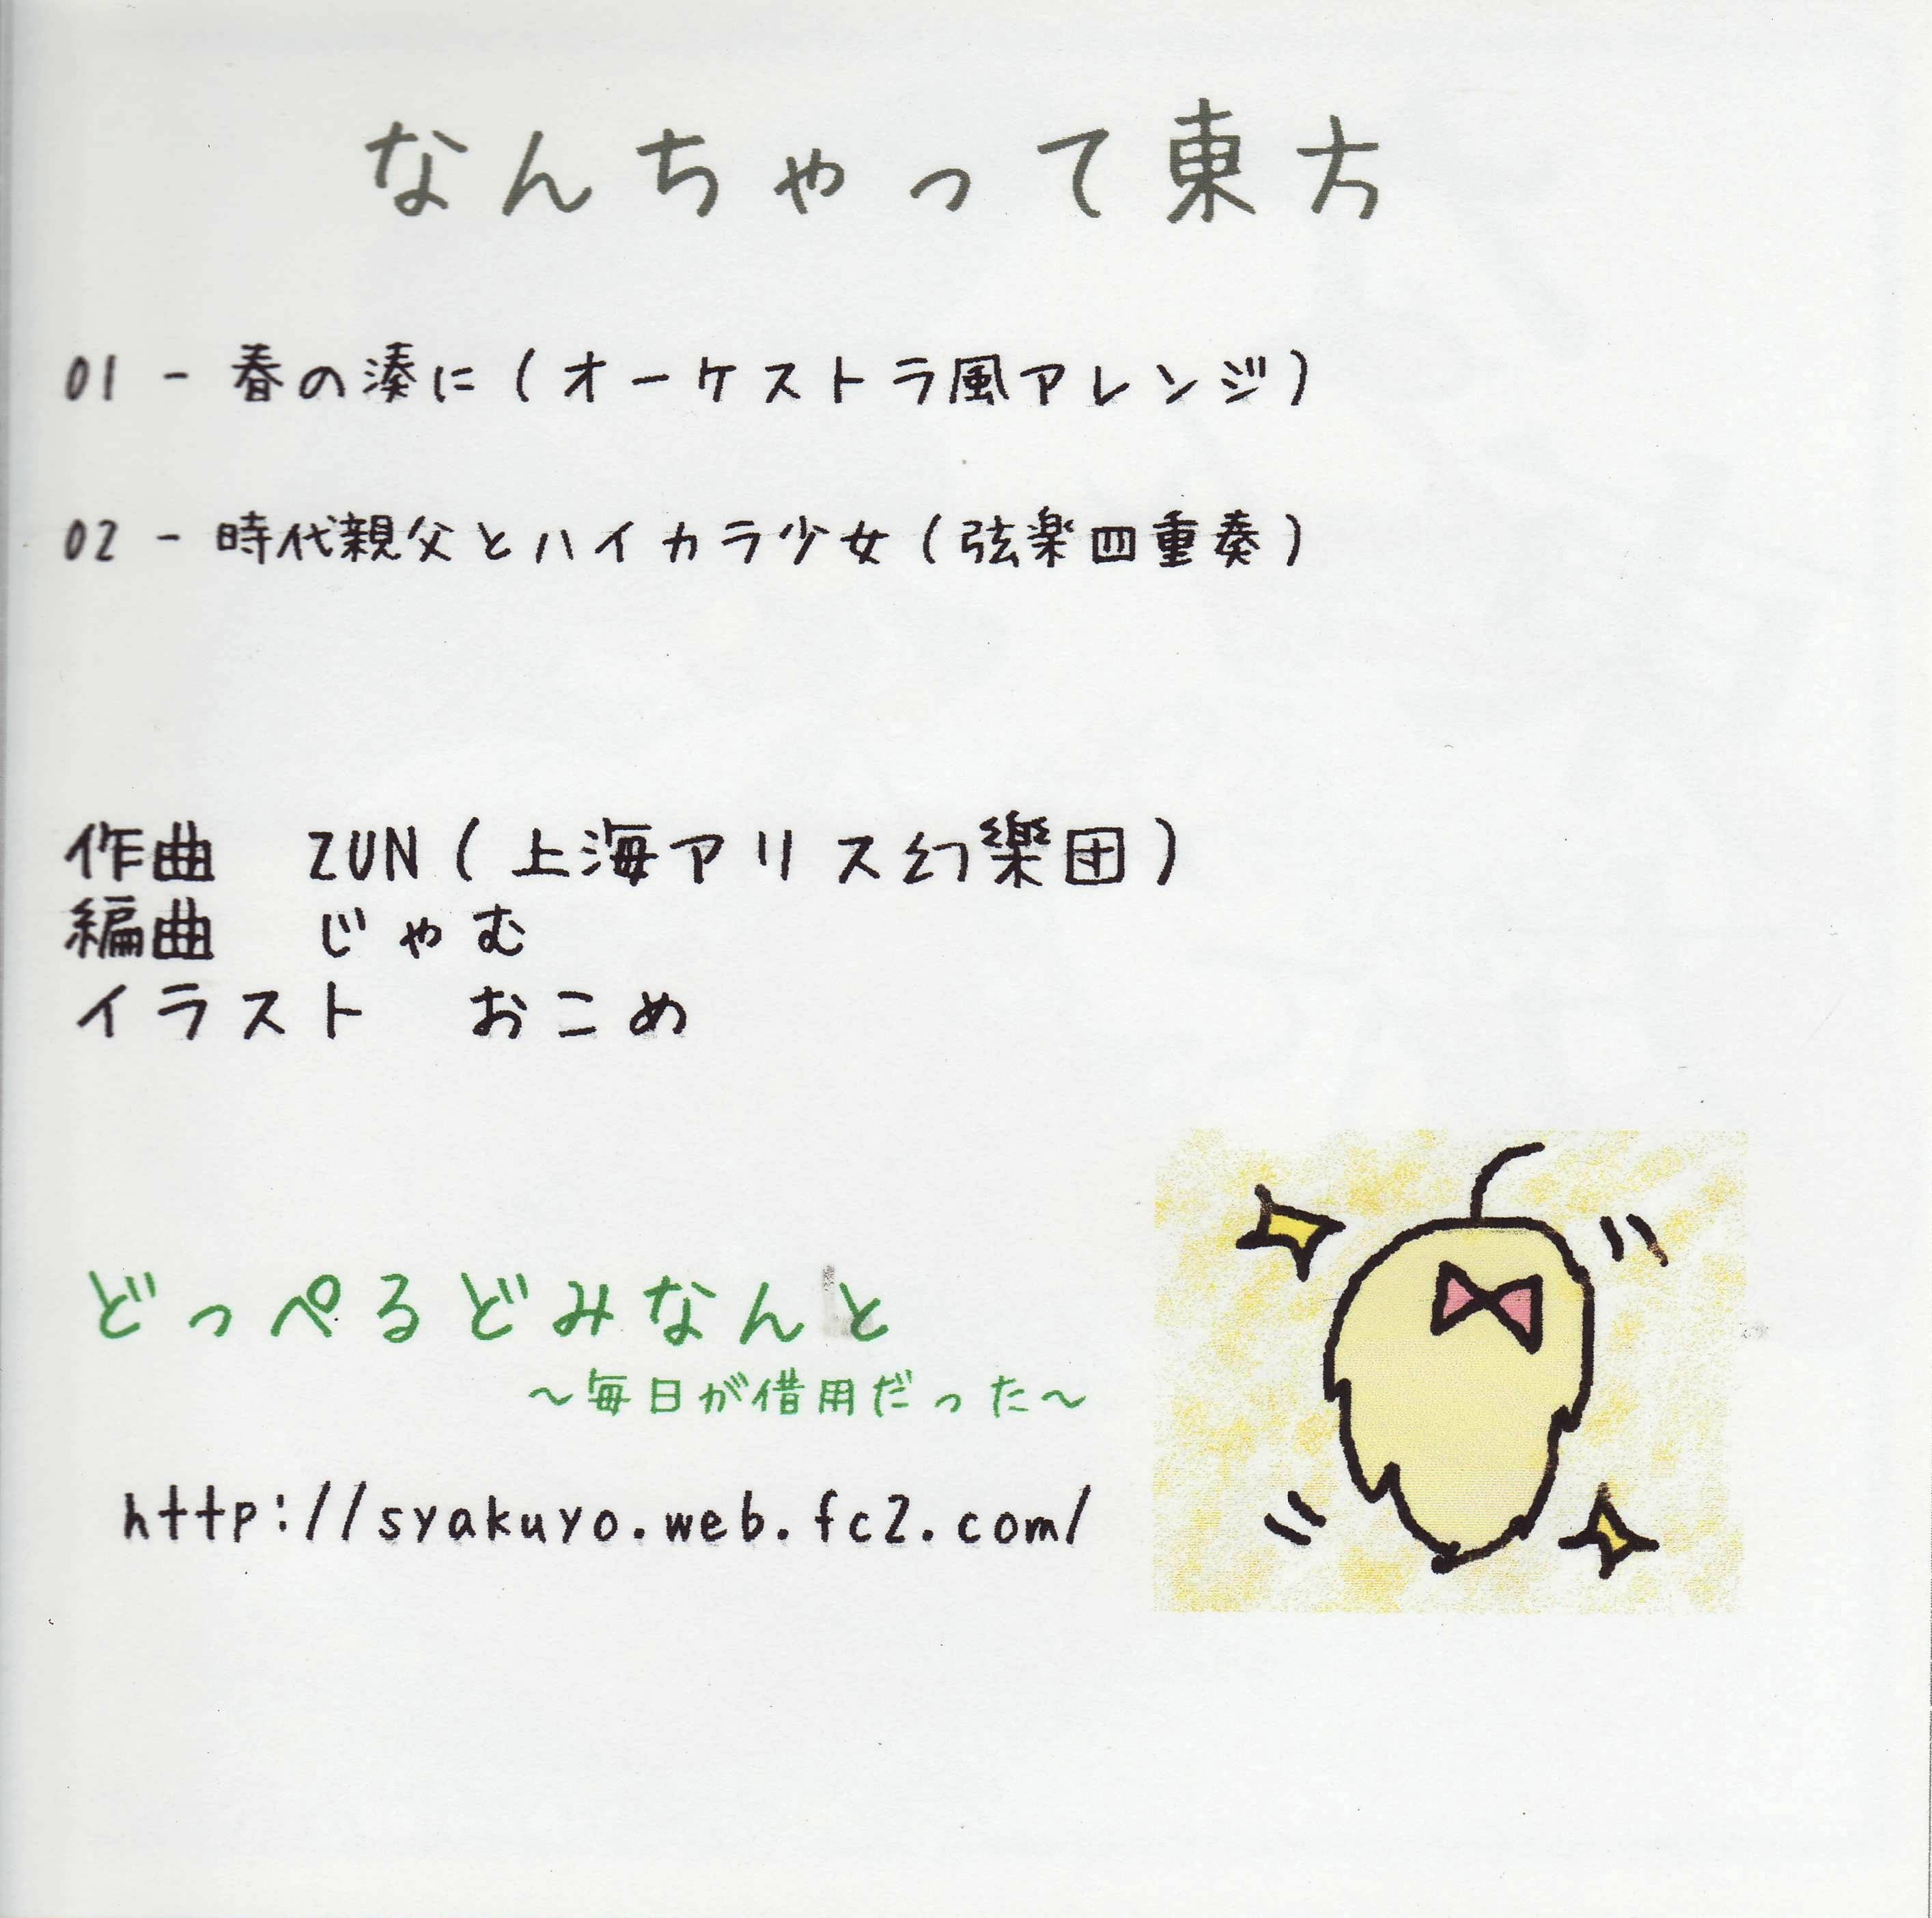 なんちゃって東方
01 - 春の湊に(オーケストラ風アレンジ)
02 - 時代親父とハイカラ少女(弦楽四重奏)
作曲 ZUN(上海アリス幻樂団)
編曲 じゃむ
イラスト おこめ
どっぺるどみなんと
～毎日が借用だった～
http://syakuyo.web.fc2.com/